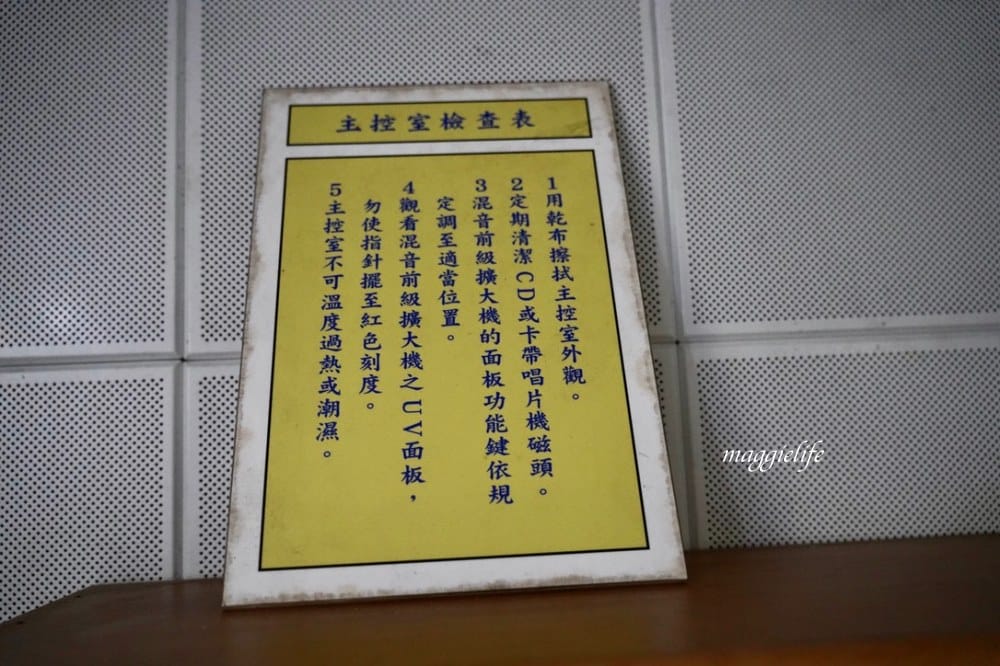 主控室檢查表
1用乾布擦拭主控室外觀。
2定期清潔CD或卡帶唱片機磁頭。
3混音前級擴大機的面板功能鍵依規
定調至適當位置。
4觀看混音前級擴大機之UV面板，
勿使指針擺至紅色刻度。
5主控室不可溫度過熱或潮濕。
maggielife